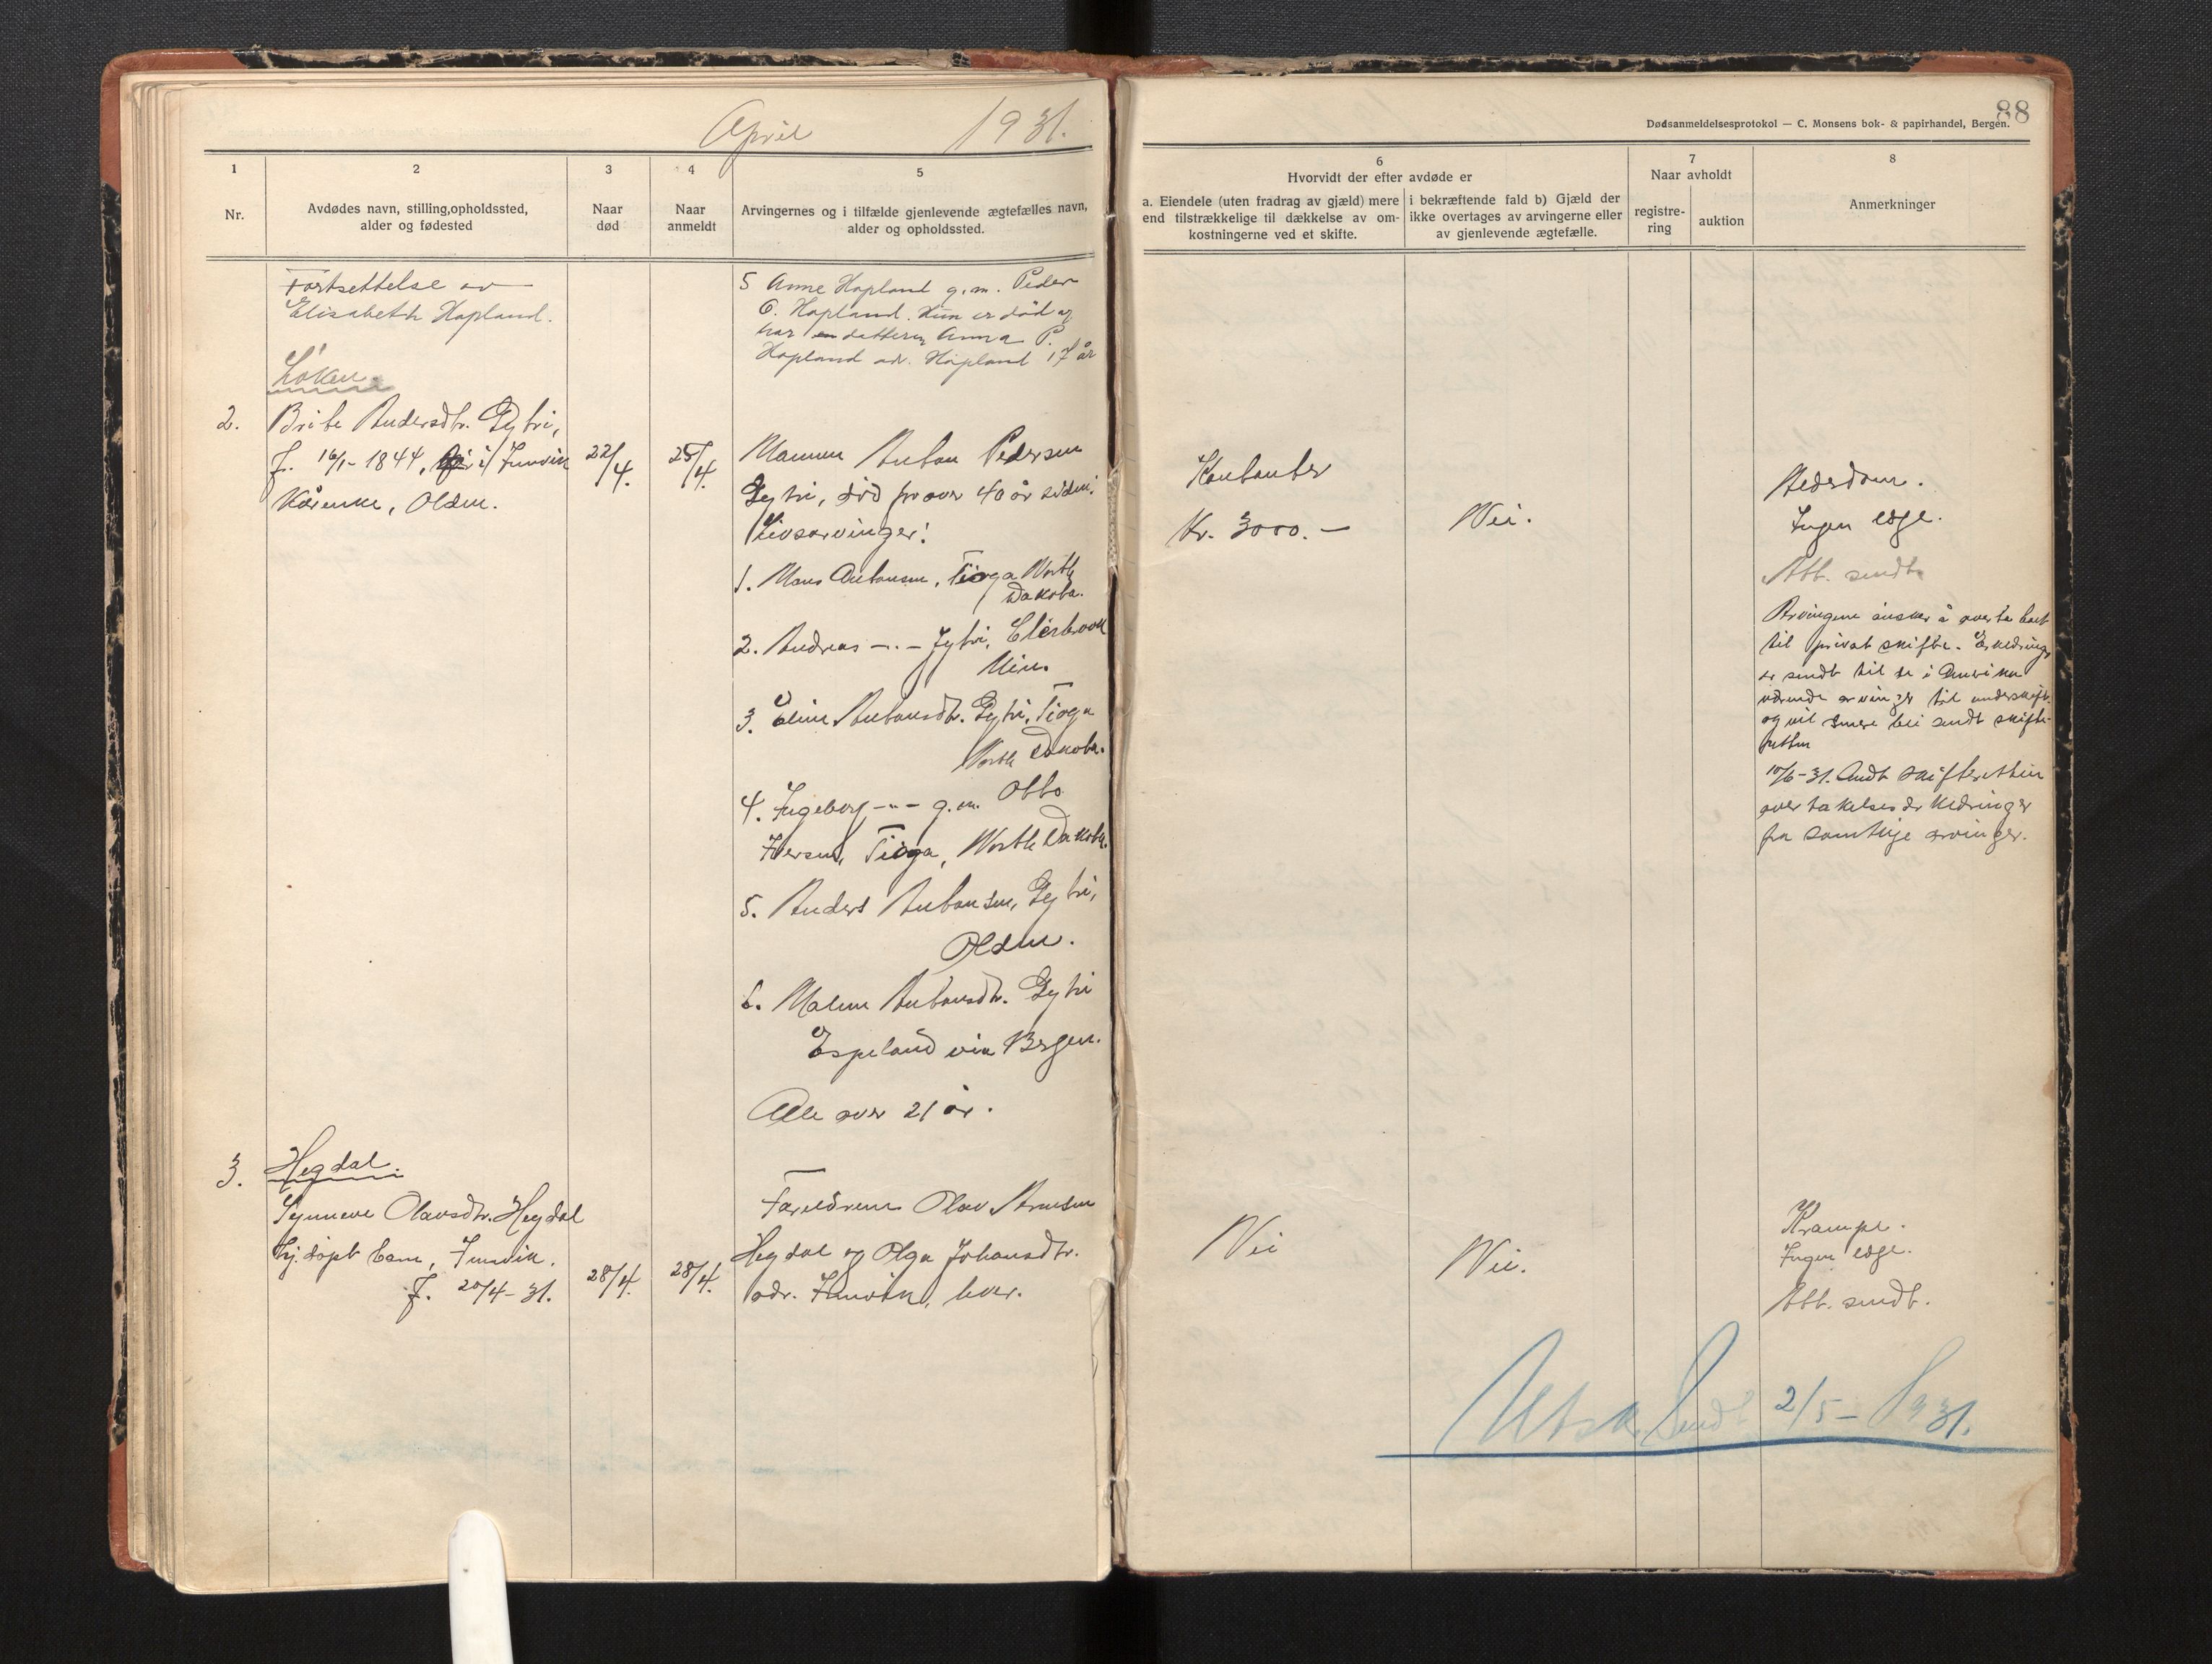 April 1931.
88
Dødsanmeldelsesprotokol — C. Monsens bok- & papirhandel, Bergen.
1
Nr.
2
Avdødes navn, stilling, opholdssted,
alder og fødested
3
Naar
død
4
Naar
anmeldt
5
Arvingernes og i tilfælde gjenlevende ægtefælles navn,
alder og opholdssted.
6
Hvorvidt der efter avdøde er
a. Eiendele (uten fradrag av gjæld) mere
end tilstrækkelige til dækkelse av om-
kostningerne ved et skifte.
i bekræftende fald b) Gjæld der
ikke overtages av arvingerne eller
av gjenlevende ægtefælle.
7
Naar avholdt
registre-
ring
auktion
8
Anmerkninger
Fortsettelse av
Elisabeth Hopland.
5 Anne Hopland g.m. Peder
O. Hopland. Hun er død og
har en datter Anna P.
Hopland adr. Hopland 17 år
Løken
2.
Brite Andersdtr. Gytri,
f. 16/1-1844, i Innvik
Kårenke, Olden.
22/4.
25/4.
Mannen Anton Pedersen
Gytri, død for over 40 år siden.
Livsarvinger:
1. Mons Antonsen, Tioga North
Dakota.
2. Andreas -"- Gytri,
Minn.
3. Eline Antonsdtr. Gytri, Tioga
North Dakota.
4. Ingeborg -"- g.m. Otto
Iversen, Tioga, North Dakota.
5. Anders Antonsen, Gytri,
Olden.
6. Malene Antonsdtr. Gytri
Espeland via Bergen.
Alle over 21 år.
Kontanter
Kr. 3000.-
Nei.
Alderdom.
Ingen læge.
Att. sendt.
Arvingene ønsker å overta boet
til privat skifte. Erklæringer
er sendt til de i Amerika
værende arvinger til underskrift
og vil senere bli sendt skifte-
retten
10/6-31. Sendt skifteretten
overtakelseserklæringer
fra samtlige arvinger.
3.
Hegdal.
Synneve Olavsdtr. Hegdal
hj. døpt barn, Innvik.
f. 20/4-31.
28/4.
28/4.
Foreldrene Olav Arnesen
Hegdal og Olga Johansdtr.
adr. Innvik, lever.
Nei
Nei.
Krampe.
Ingen læge.
Att. sendt.
Utsk. Sendt 2/5-1931.